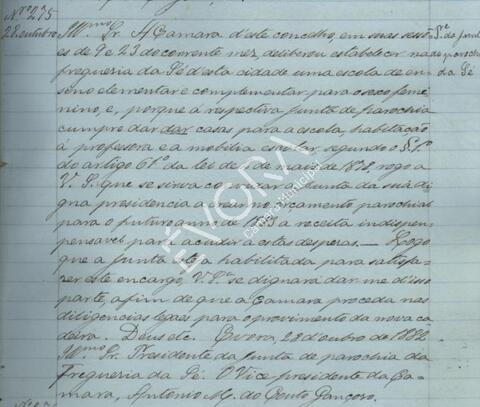 Nº 275
28 outubro
Illmo Sr. A Camara d'este concelho, em suas sessõ
es de 9 e 23 do corrente mez, deliberou estabelecer na
freguezia da Sé d'esta cidade uma escola de en-
sino elementar e complementar para o sexo femi-
nino, e, porque á respectiva junta de parochia
cumpre dar dar casas para a escola, habitação
á professora e a mobilia escolar segundo o § 1º
do artigo 61º da lei de 2 de maio de 1878, rogo a
V. Sª que se sirva convocar a junta da sua di
gna presidencia a crear no orçamento parochial
para o futuro anno de 1883 a receita indispen-
pensavel para acudir a estas despezas. — Logo
que a junta esteja habilitada para satisfa-
zer este encargo, V. Sª se dignará dar me d'isso
parte, afim de que a Camara proceda nas
diligencias legaes para o provimento da nova ca
deira. Deus etc. Evora, 28 d'outubro de 1882
Illmo Sr. Presidente da junta de parochia da
Freguezia da Sé. O Vice presidente da Ca-
mara, Antonio M. do Couto Zançoso.
Sr. da junta
de parochia
da Sé
EVORA
Câmara Municipal